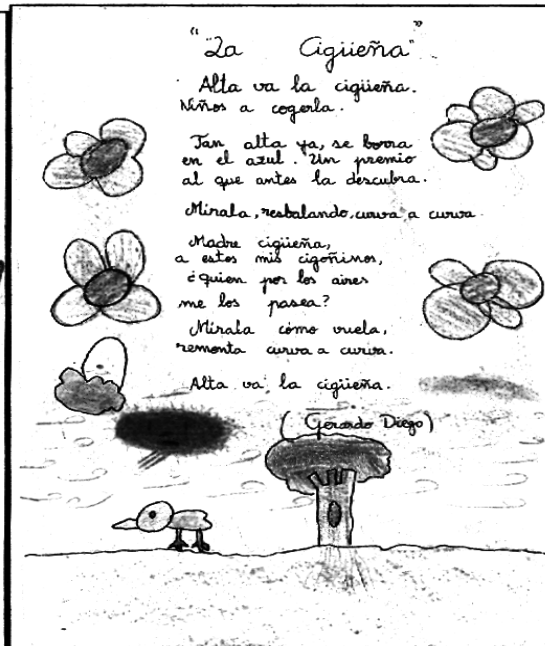 "La Cigüeña"
Alta va la cigüeña.
Niños a cogerla.
Tan alta ya, se borra
en el azul. Un premio
al que antes la descubra.
Mírala, resbalando, curva a curva
Madre cigüeña,
a estos mis cigoñinos,
¿quien por los aires
me los pasea?
Mírala cómo vuela,
remonta curva a curva.
Alta va la cigüeña.
(Gerardo Diego)